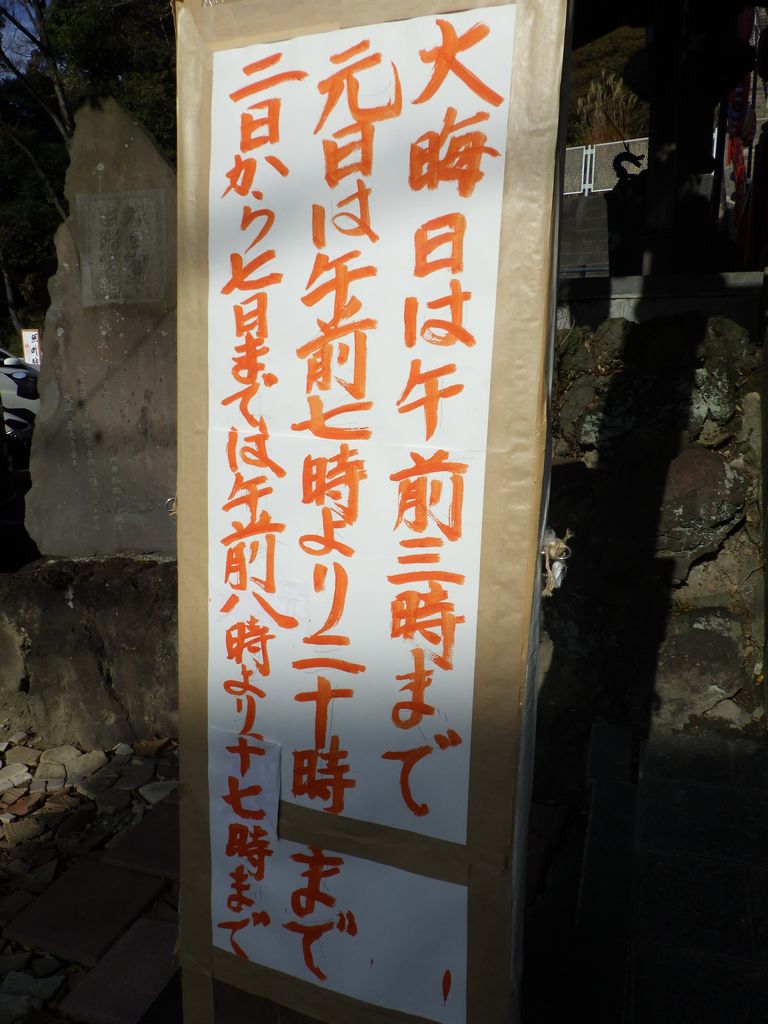 大晦日は午前三時まで
元日は午前七時より二十時まで
二日から七日までは午前八時より十七時まで